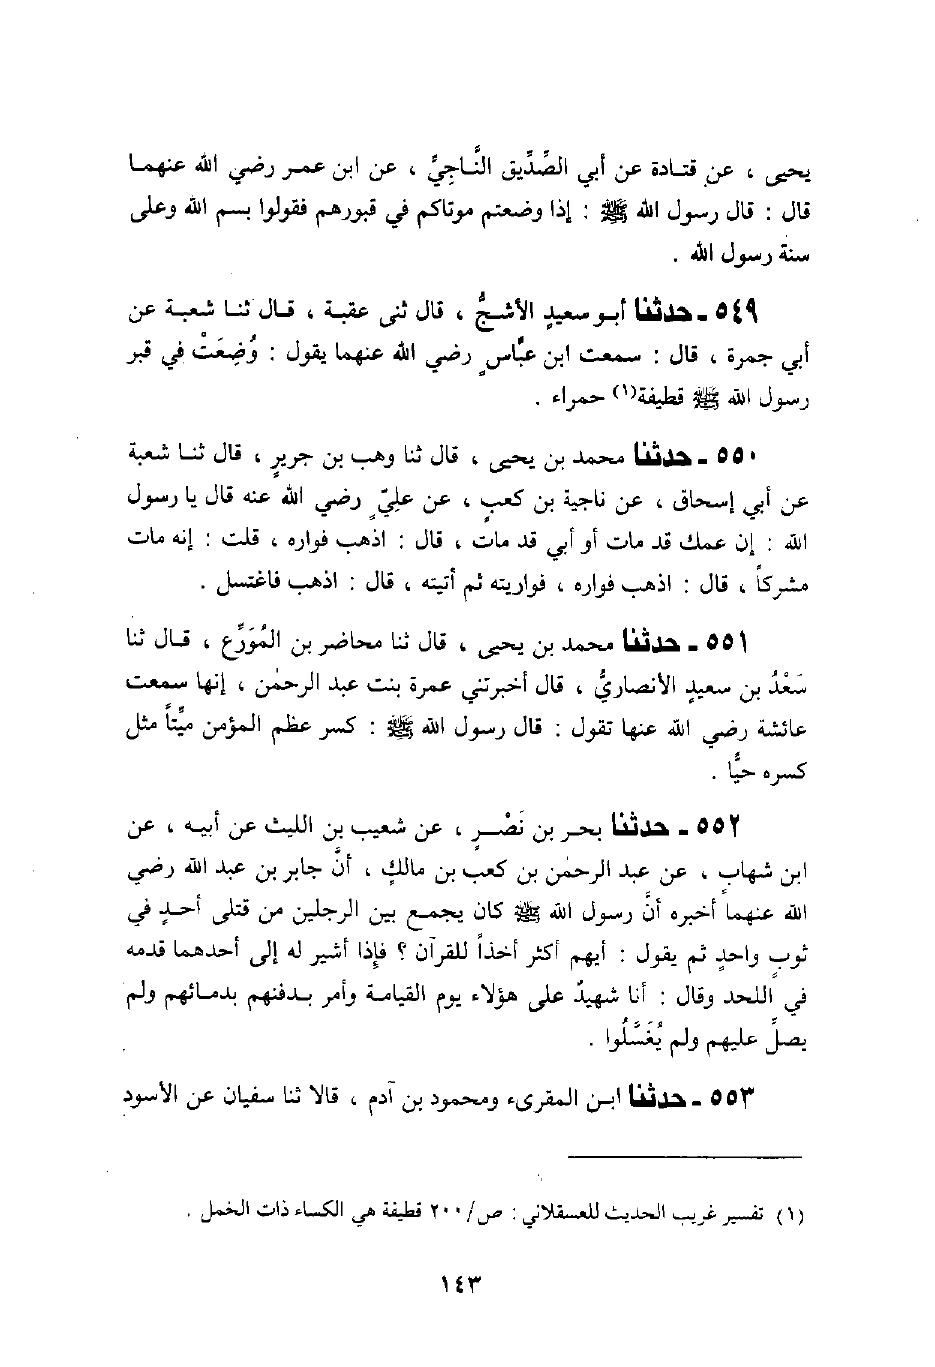 يحيى ، عن قتادة عن أبي الصِّدِّيق النَّاجِيِّ ، عن ابن عمر رضي الله عنهما
قال : قال رسول الله ﷺ : إذا وضعتم موتاكم في قبورهم فقولوا بسم الله وعلى
سنة رسول الله .
٥٤٩ ـ حدثنا أبو سعيدٍ الأشجُّ ، قال ثنى عقبة ، قال ثنا شعبة عن
أبي جمرة ، قال : سمعت ابن عبَّاسٍ رضي الله عنهما يقول : وُضِعَتْ في قبر
رسول الله ﷺ قطيفة(١) حمراء .
٥٥٠ ـ حدثنا محمد بن يحيى ، قال ثنا وهب بن جريرٍ ، قال ثنا شعبة
عن أبي إسحاق ، عن ناجية بن كعبٍ ، عن عليّ رضي الله عنه قال يا رسول
الله : إن عمك قد مات أو أبي قد مات ، قال : اذهب فواره ، قلت : إنه مات
مشركاً ، قال : اذهب فواره ، فواريته ثم أتيته ، قال : اذهب فاغتسل .
٥٥١ ـ حدثنا محمد بن يحيى ، قال ثنا محاضر بن المُوَرِّع ، قال ثنا
سَعْدُ بن سعيدٍ الأنصاريُّ ، قال أخبرتني عمرة بنت عبد الرحمٰن ، إنها سمعت
عائشة رضي الله عنها تقول : قال رسول الله ﷺ : كسر عظم المؤمن ميِّتاً مثل
كسره حيًّا .
٥٥٢ ـ حدثنا بحر بن نَصْرٍ ، عن شعيب بن الليث عن أبيه ، عن
ابن شهابٍ ، عن عبد الرحمٰن بن كعب بن مالكٍ ، أنَّ جابر بن عبد الله رضي
الله عنهما أخبره أنَّ رسول الله ﷺ كان يجمع بين الرجلين من قتلى أحدٍ في
ثوبٍ واحدٍ ثم يقول : أيهم أكثر أخذاً للقرآن ؟ فإذا أشير له إلى أحدهما قدمه
في اللحد وقال : أنا شهيدٌ على هؤلاء يوم القيامة وأمر بدفنهم بدمائهم ولم
يصلِّ عليهم ولم يُغَسَّلُوا .
٥٥٣ ـ حدثنا ابن المقرىء ومحمود بن آدم ، قالا ثنا سفيان عن الأسود
(١) تفسير غريب الحديث للعسقلاني : ص/٢٠٠ قطيفة هي الكساء ذات الخمل .
١٤٣